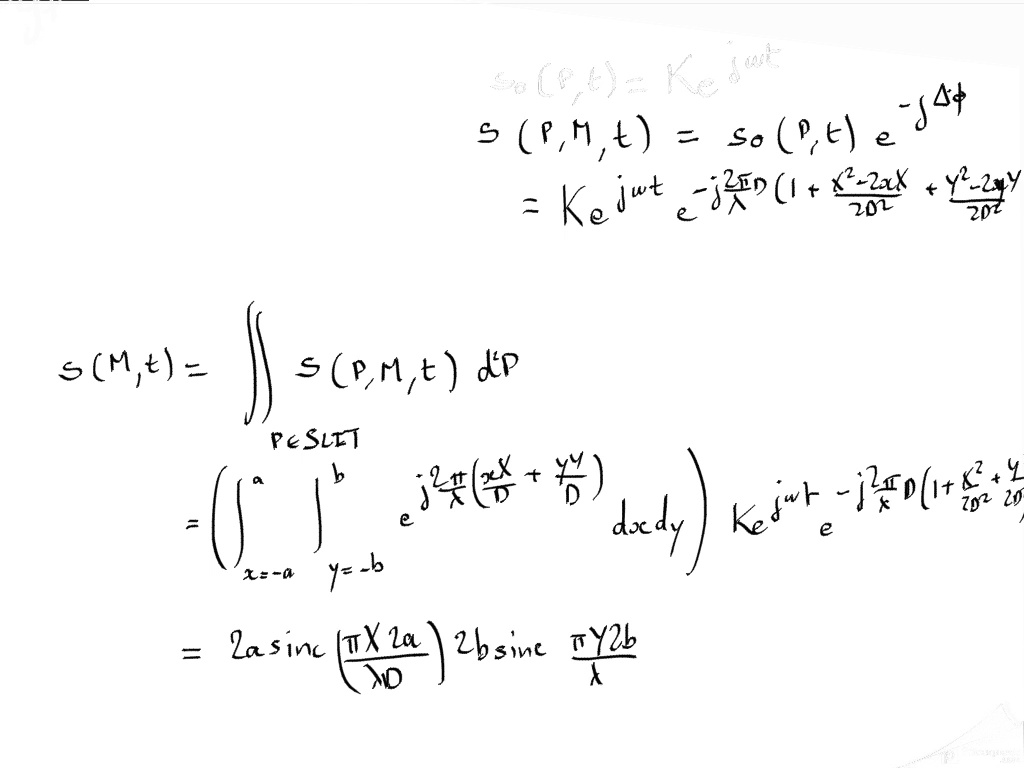 so(P,t) = Ke^{jωt}
s(P,M,t) = so(P,t) e^{-jΔϕ}
= Ke^{jωt} e^{-j\frac{2π}{λ}D(1 + \frac{X²-2xX}{2D²} + \frac{Y²-2yY}{2D²}}
s(M,t) = ∬_{P∈SLIT} s(P,M,t) d²P
= (∫_{x=-a}^{a} ∫_{y=-b}^{b} e^{j\frac{2π}{λ}(\frac{xX}{D} + \frac{yY}{D})} dxdy) Ke^{jωt} e^{-j\frac{2π}{λ}D(1 + \frac{X²}{2D²} + \frac{Y}{2D}}
= 2a sinc(\frac{πX2a}{λD}) 2b sinc \frac{πY2b}{λ}